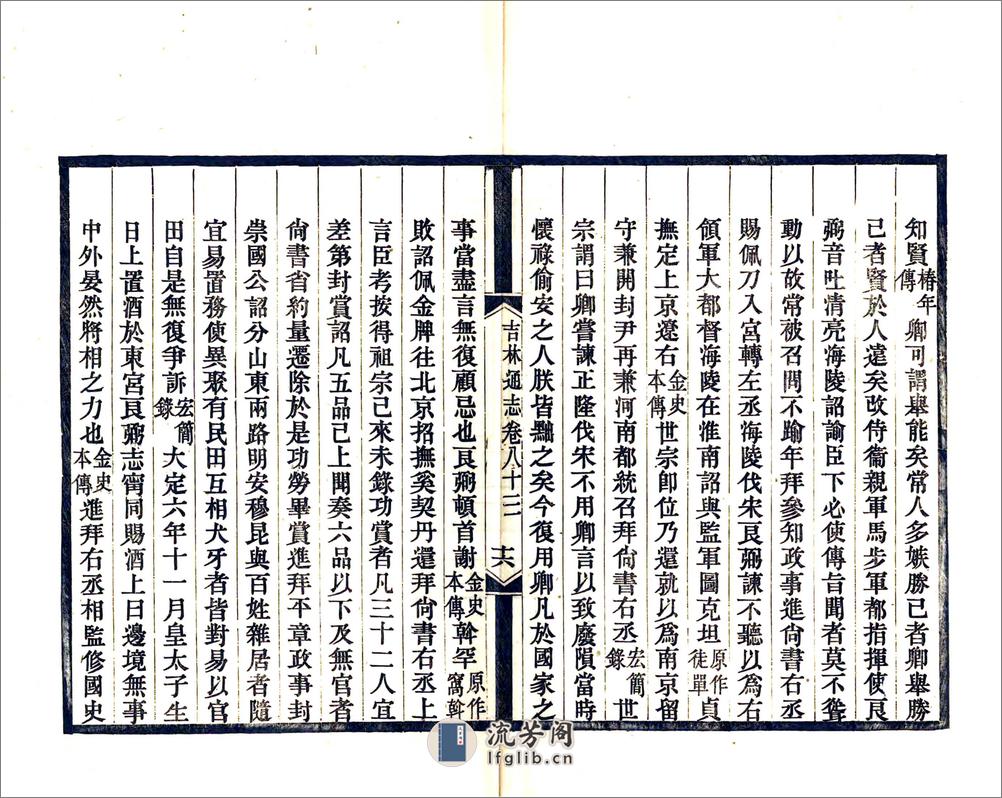 知賢椿年傳卿可謂舉能矣常人多嫉勝己者卿舉勝
己者賢於人遠矣改侍衞親軍馬步軍都指揮使良
弼音吐清亮海陵詔諭臣下必使傳旨聞者莫不聳
動以故常被召問不踰年拜參知政事進尙書右丞
賜佩刀入宮轉左丞海陵伐宋良弼諫不聽以爲右
領軍大都督海陵在淮南詔與監軍圖克坦原作徒單貞
撫定上京遼右金史本傳世宗卽位乃還就以爲南京留
守兼開封尹再兼河南都統召拜尙書右丞宏簡錄世
宗謂曰卿嘗諫正隆伐宋不用卿言以致廢隕當時
懷祿偷安之人朕皆黜之矣今復用卿凡於國家之
吉林通志卷八十三 十六
事當盡言無復顧忌也良弼頓首謝金史本傳斡罕原作窩斡
敗詔佩金牌往北京招撫奚契丹還拜尙書右丞上
言臣考按得祖宗已來未錄功賞者凡三十二人宜
差第封賞詔凡五品已上聞奏六品以下及無官者
尙書省約量遷除於是功勞畢賞進拜平章政事封
崇國公詔分山東兩路明安穆昆與百姓雜居者隨
宜易置務使異聚有民田互相犬牙者皆對易以官
田自是無復爭訴宏簡錄大定六年十一月皇太子生
日上置酒於東宮良弼志寧同賜酒上曰邊境無事
中外晏然將相之力也金史本傳進拜右丞相監修國史
流芳阁
lfglib.cn